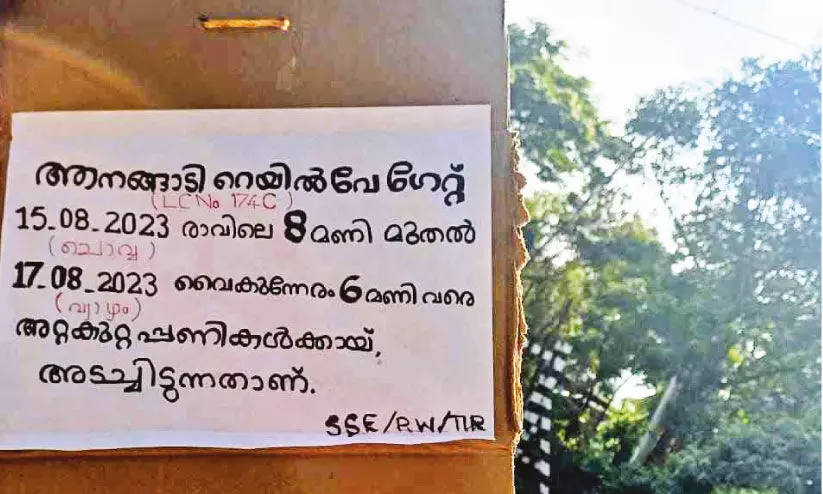 ആനങ്ങാടി റെയിൽവേ ഗേറ്റ്
(LC No 174C)
15-08-2023 രാവിലെ 8 മണി മുതൽ
(ചൊവ്വ)
17-08-2023 വൈകുന്നേരം 6 മണി വരെ
(വ്യാഴം)
അറ്റകുറ്റപ്പണികൾക്കായ്,
അടച്ചിടുന്നതാണ്.
SSE/P.W/TIR